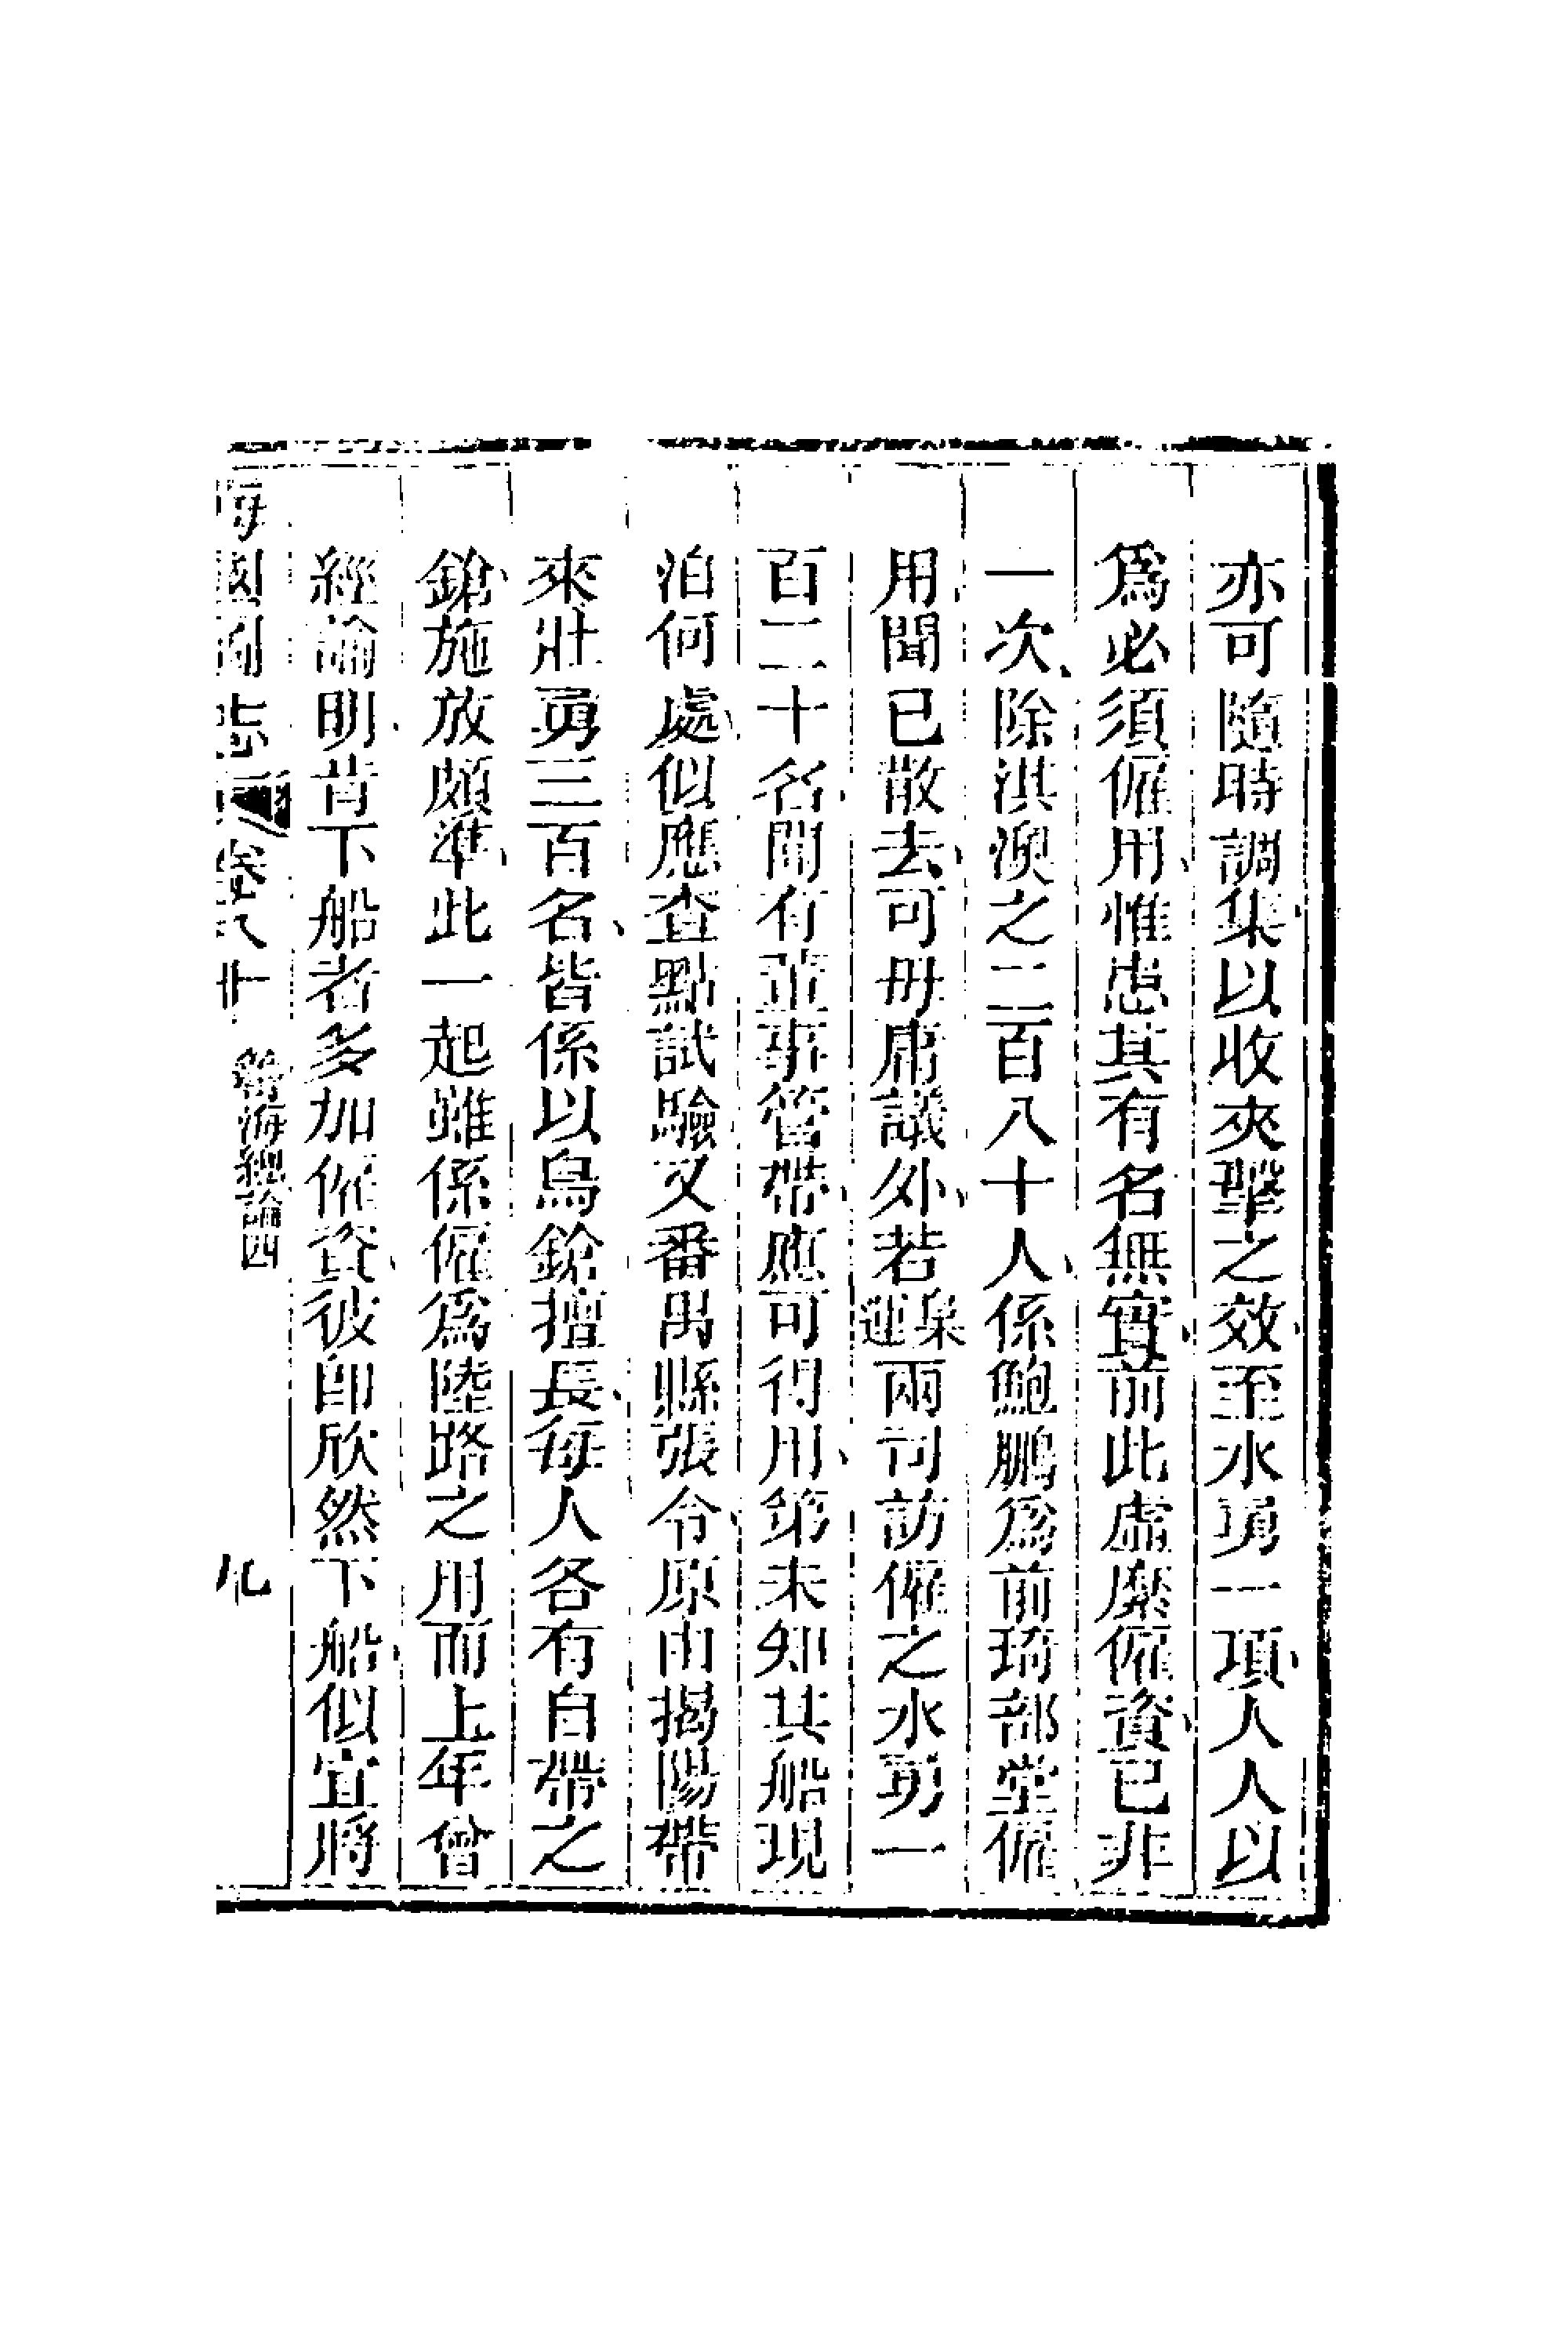 亦可隨時調集以收夾擊之效至水勇一項人人以
爲必須僱用惟患其有名無實前此虛糜僱資已非
一次除淇澳之二百八十人係鮑鵬爲前琦部堂僱
用聞已散去可毋庸議外若梟運兩司訪僱之水勇一
百二十名聞有董事管帶應可得用第未知其船現
泊何處似應查點試驗又番禺縣張令原由揭陽帶
來壯勇三百名皆係以鳥鎗擅長每人各有自帶之
鎗施放頗準此一起雖係僱爲陸路之用而上年曾
經諭明肯下船者多加僱資彼卽欣然下船似宜將
海國圖志 卷八十 籌海總論四 九